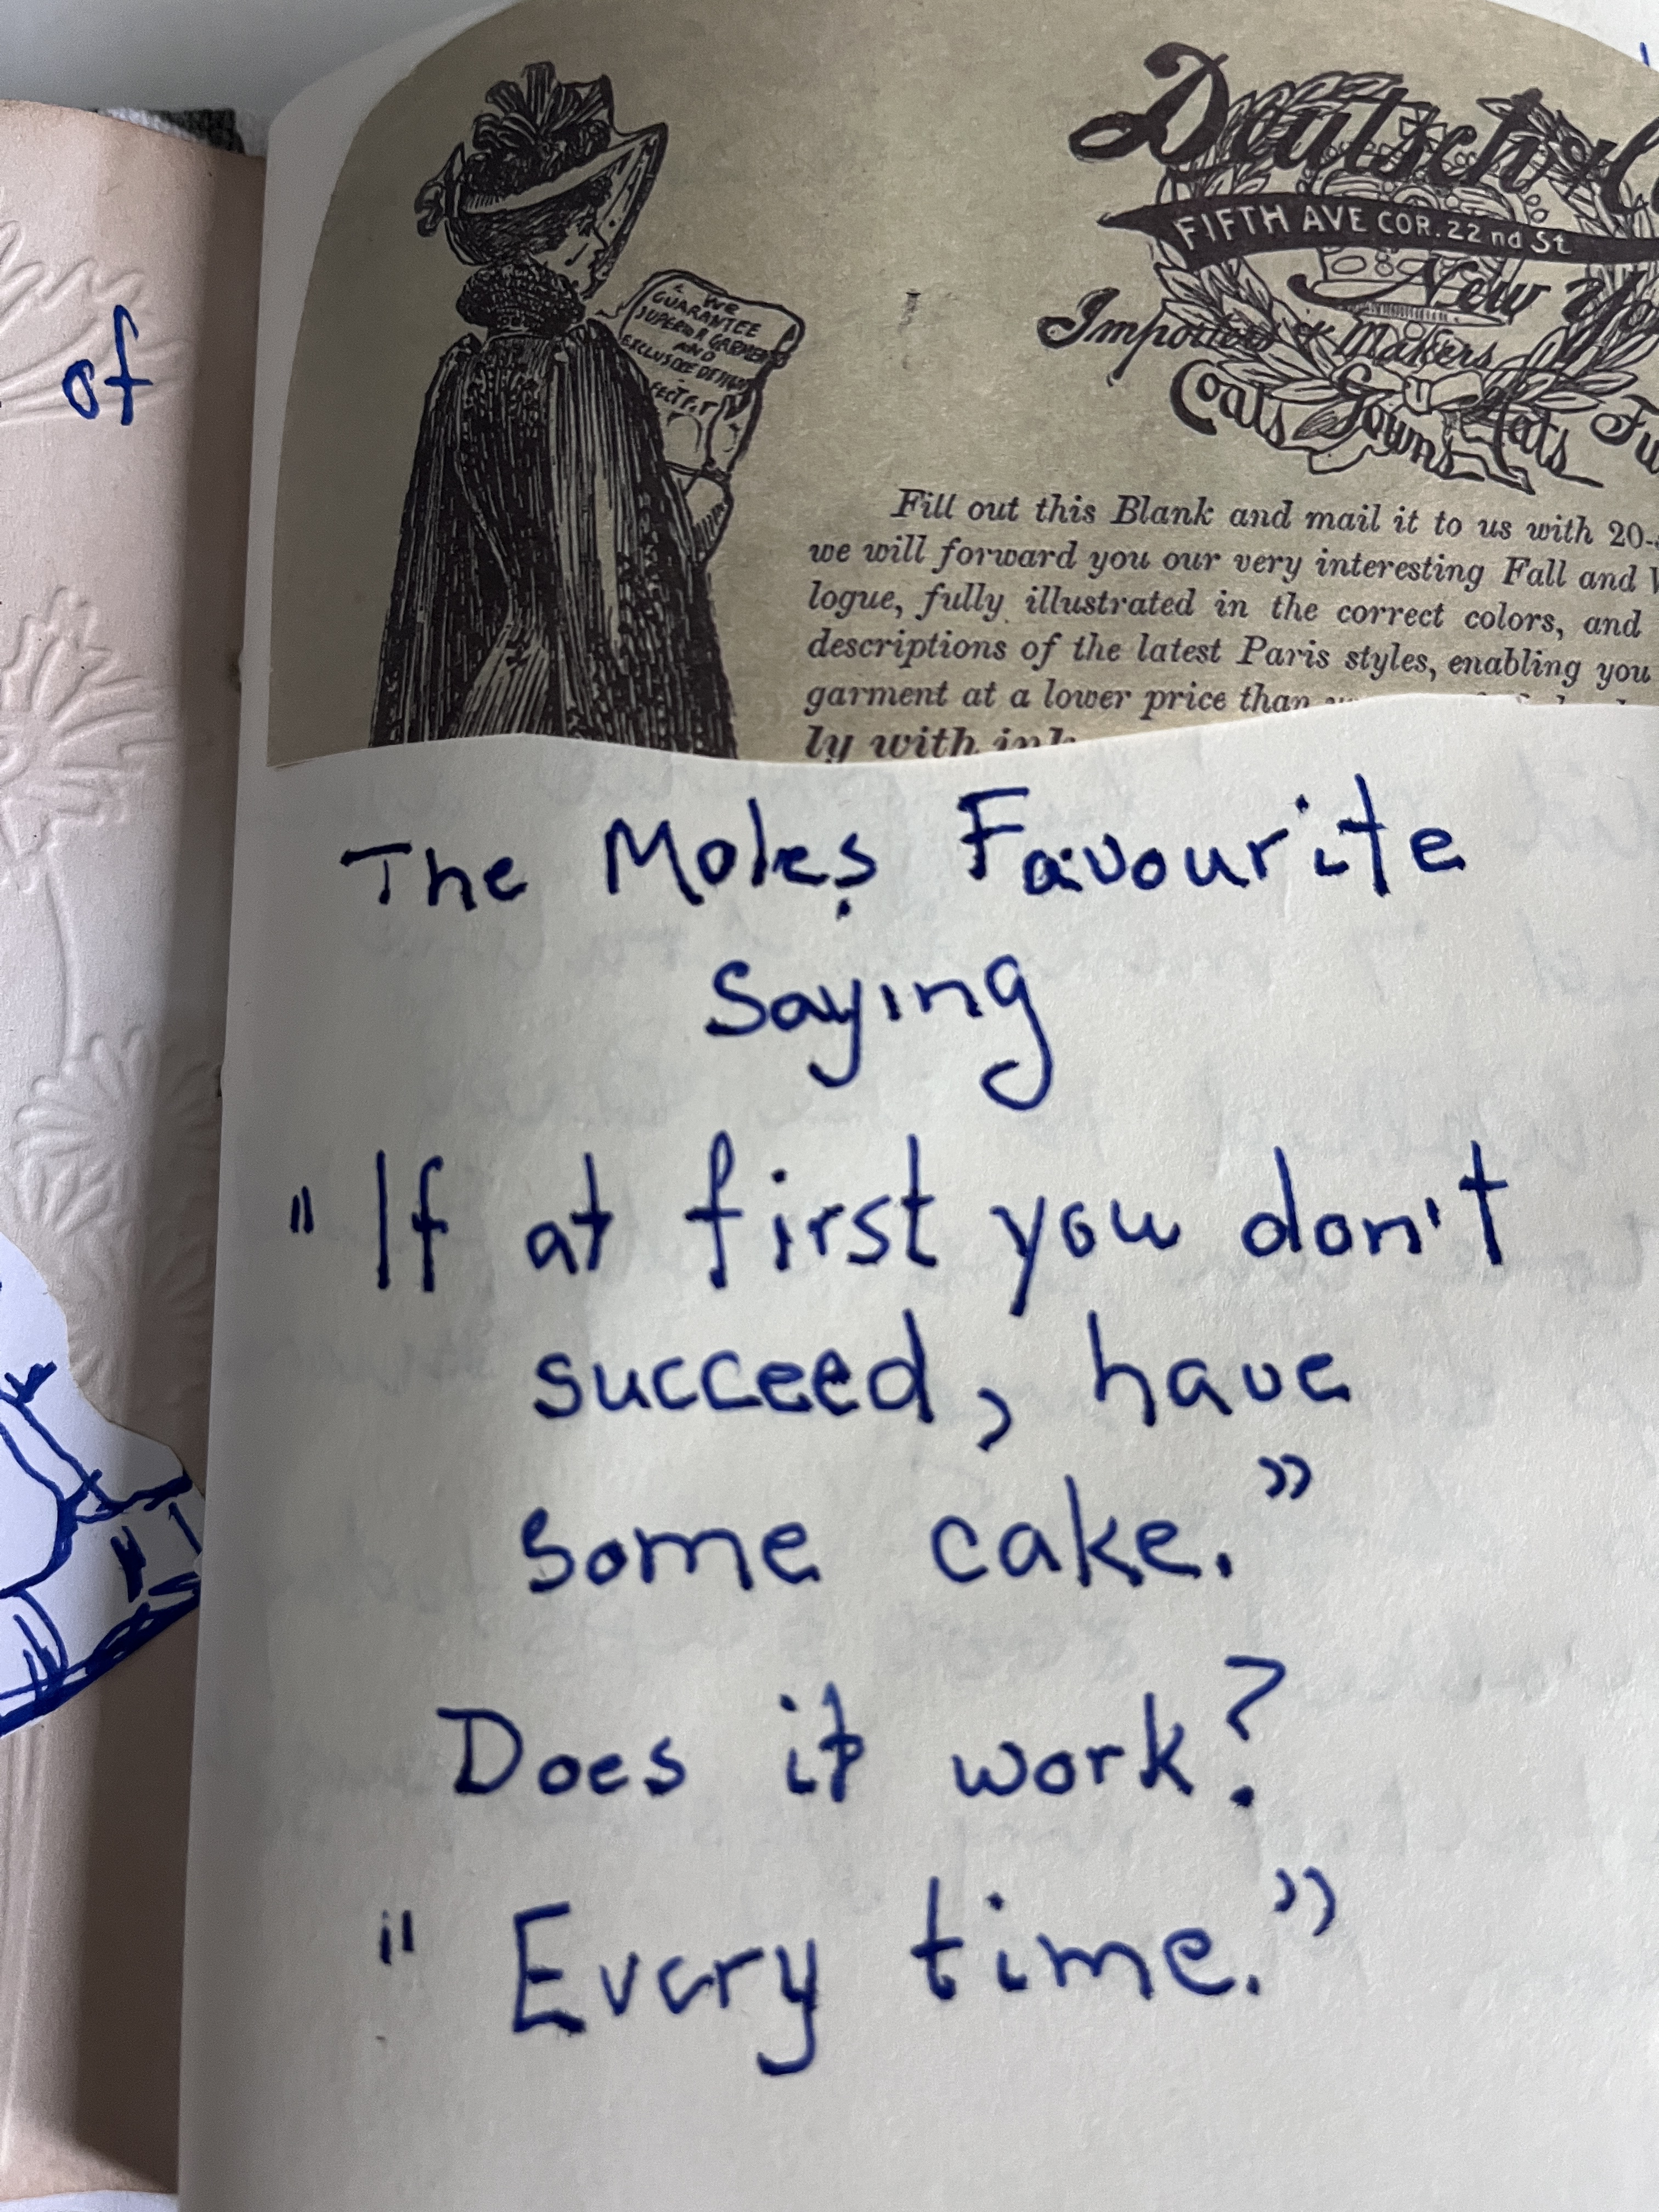 of
Deutsch & C
FIFTH AVE COR. 22nd St
New Yo
Importers & Makers
Coats Gowns Hats Fu
WE
GUARANTEE
SUPERIOR GARMENTS
AND
EXCLUSIVE DESIGNS
Fill out this Blank and mail it to us with 20-
we will forward you our very interesting Fall and W
logue, fully illustrated in the correct colors, and
descriptions of the latest Paris styles, enabling you
garment at a lower price than
ly with ink
The Moles Favourite
Saying
"If at first you don't
succeed, have
some cake."
Does it work?
"Every time."